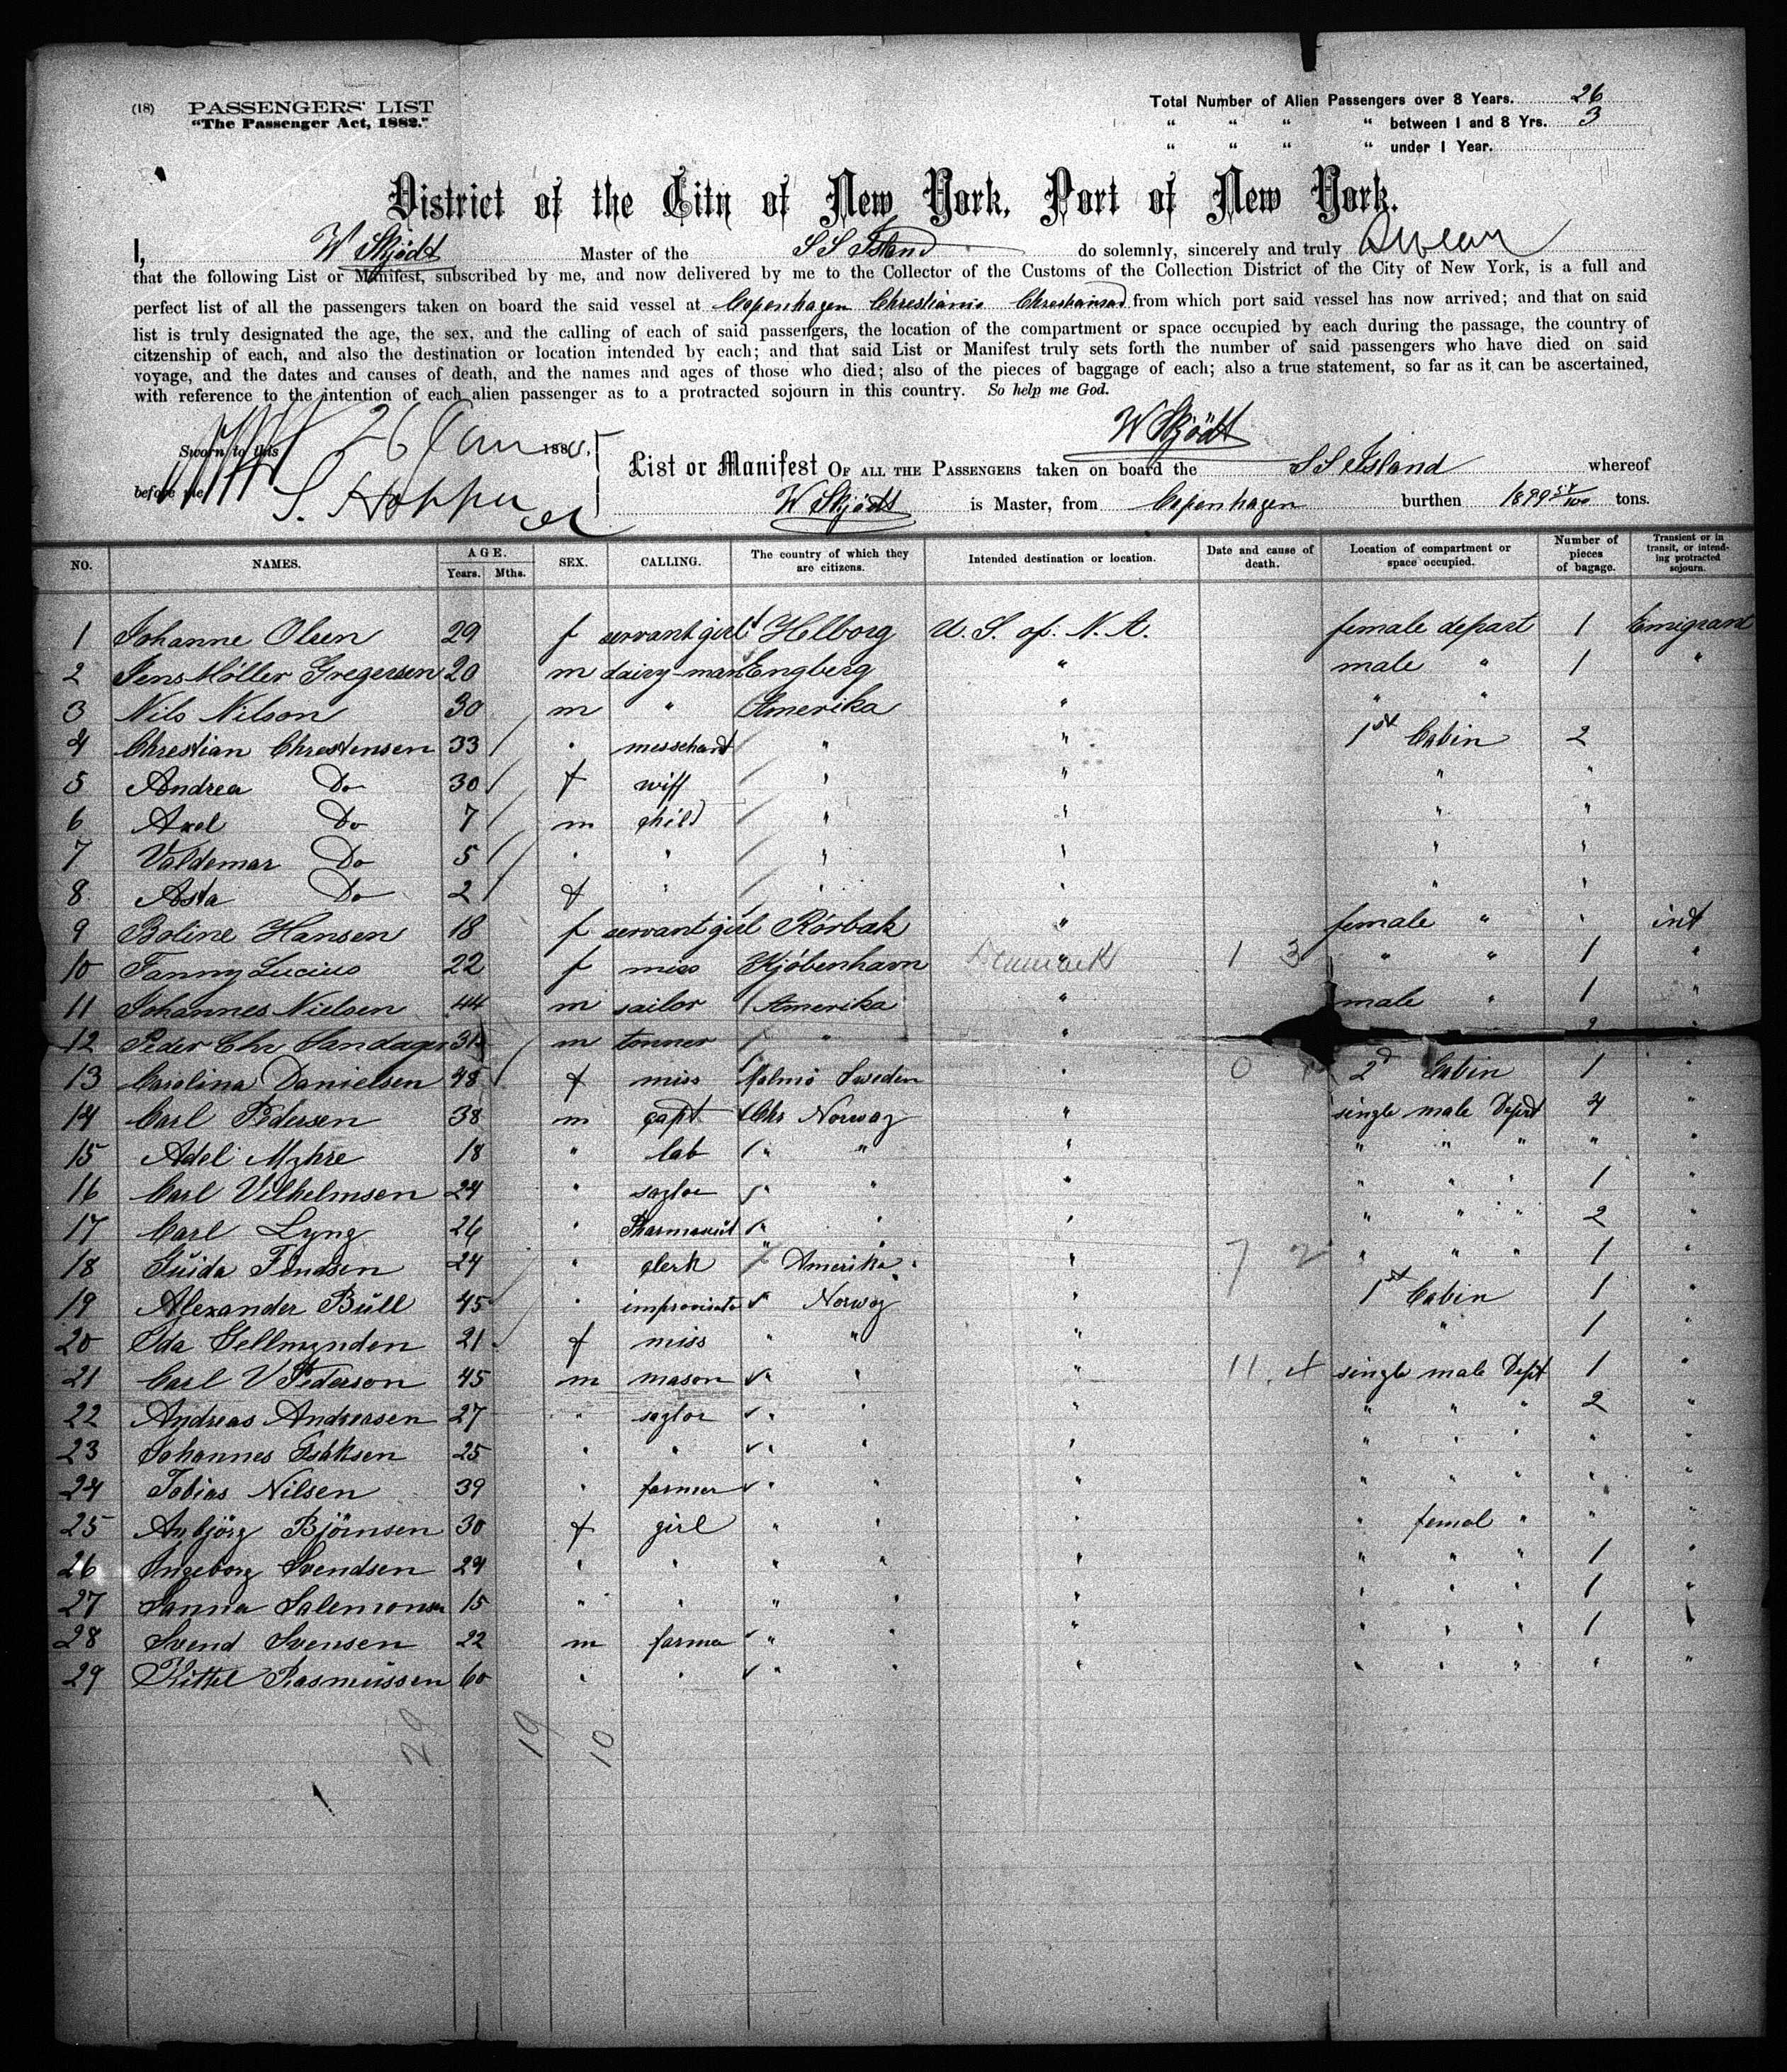 (18) PASSENGERS' LIST
"The Passenger Act, 1882."
Total Number of Alien Passengers over 8 Years. 26
" " " " between 1 and 8 Yrs. 3
" " " " under 1 Year.
District of the City of New York, Port of New York.
I, W Skjödt Master of the S S Island do solemnly, sincerely and truly Swear
that the following List or Manifest, subscribed by me, and now delivered by me to the Collector of the Customs of the Collection District of the City of New York, is a full and
perfect list of all the passengers taken on board the said vessel at Copenhagen Christiania Christiansand from which port said vessel has now arrived; and that on said
list is truly designated the age, the sex, and the calling of each of said passengers, the location of the compartment or space occupied by each during the passage, the country of
citzenship of each, and also the destination or location intended by each; and that said List or Manifest truly sets forth the number of said passengers who have died on said
voyage, and the dates and causes of death, and the names and ages of those who died; also of the pieces of baggage of each; also a true statement, so far as it can be ascertained,
with reference to the intention of each alien passenger as to a protracted sojourn in this country. So help me God.
W Skjödt
Sworn to this 26 Jan 188
before me
List or Manifest OF ALL THE PASSENGERS taken on board the S S Island whereof
W Skjödt is Master, from Copenhagen burthen 1899 54/100 tons.
NO. NAMES. AGE. Years. Mths. SEX. CALLING. The country of which they are citizens. Intended destination or location. Date and cause of death. Location of compartment or space occupied. Number of pieces of bagage. Transient or in transit, or intending protracted sojourn.
1 Johanne Olsen 29 f servant girl Helborg U. S. of. N. A. female depart 1 Emigrant
2 Jens Möller Gregersen 20 m dairy-man Engberg " male " 1 "
3 Nils Nilson 30 m " Amerika " " "
4 Chrestian Chrestensen 33 " messchant " " 1st Cabin 2
5 Andrea Do 30 f wiff " " " "
6 Axel Do 7 m child " " " "
7 Valdemar Do 5 " " " " " "
8 Asta Do 2 f " " " " "
9 Boline Hansen 18 f servant girl Rörbak " female " " int
10 Fanny Lucius 22 f miss Kjöbenhavn Denmark " 1 3 " " 1 "
11 Johannes Nielsen 44 m sailor Amerika " male " 1 "
12 Peder Chr Sandager 31 m tonner " " "
13 Carolina Danielsen 48 f miss Malmö Sweden " 0 2d Cabin 1 "
14 Carl Pedersen 38 m capt Chr Norway " single male Depart 4 "
15 Adel Myhre 18 " lab " " " " " " " "
16 Carl Vilhelmsen 24 " saylor " " " " " " 1 "
17 Carl Lyng 26 " Pharmaceut " " " " " " 2 "
18 Guida Findsen 24 " clerk " Amerika " 7 2 " " " 1 "
19 Alexander Bull 45 " improvisato Norway " 1st Cabin 1 "
20 Ida Gellmynden 21 f miss " " " " 1 "
21 Carl V Pederson 45 m mason " " " 11. 4 single male Dept 1 "
22 Andreas Andreasen 27 " saylor " " " " " " 2 "
23 Johannes Isaksen 25 " " " " " " " " " "
24 Tobias Nilsen 39 " farmer " " " " " " " "
25 Anbjörg Björnsen 30 f girl " " " " femal " " "
26 Ingeborg Svendsen 24 " " " " " " " " 1 "
27 Sanna Salemonsen 15 " " " " " " " " 1 "
28 Svend Svensen 22 m farmer " " " " " " 1 "
29 Kittel Rasmussen 60 " " " " " " " " " "
29 19 10